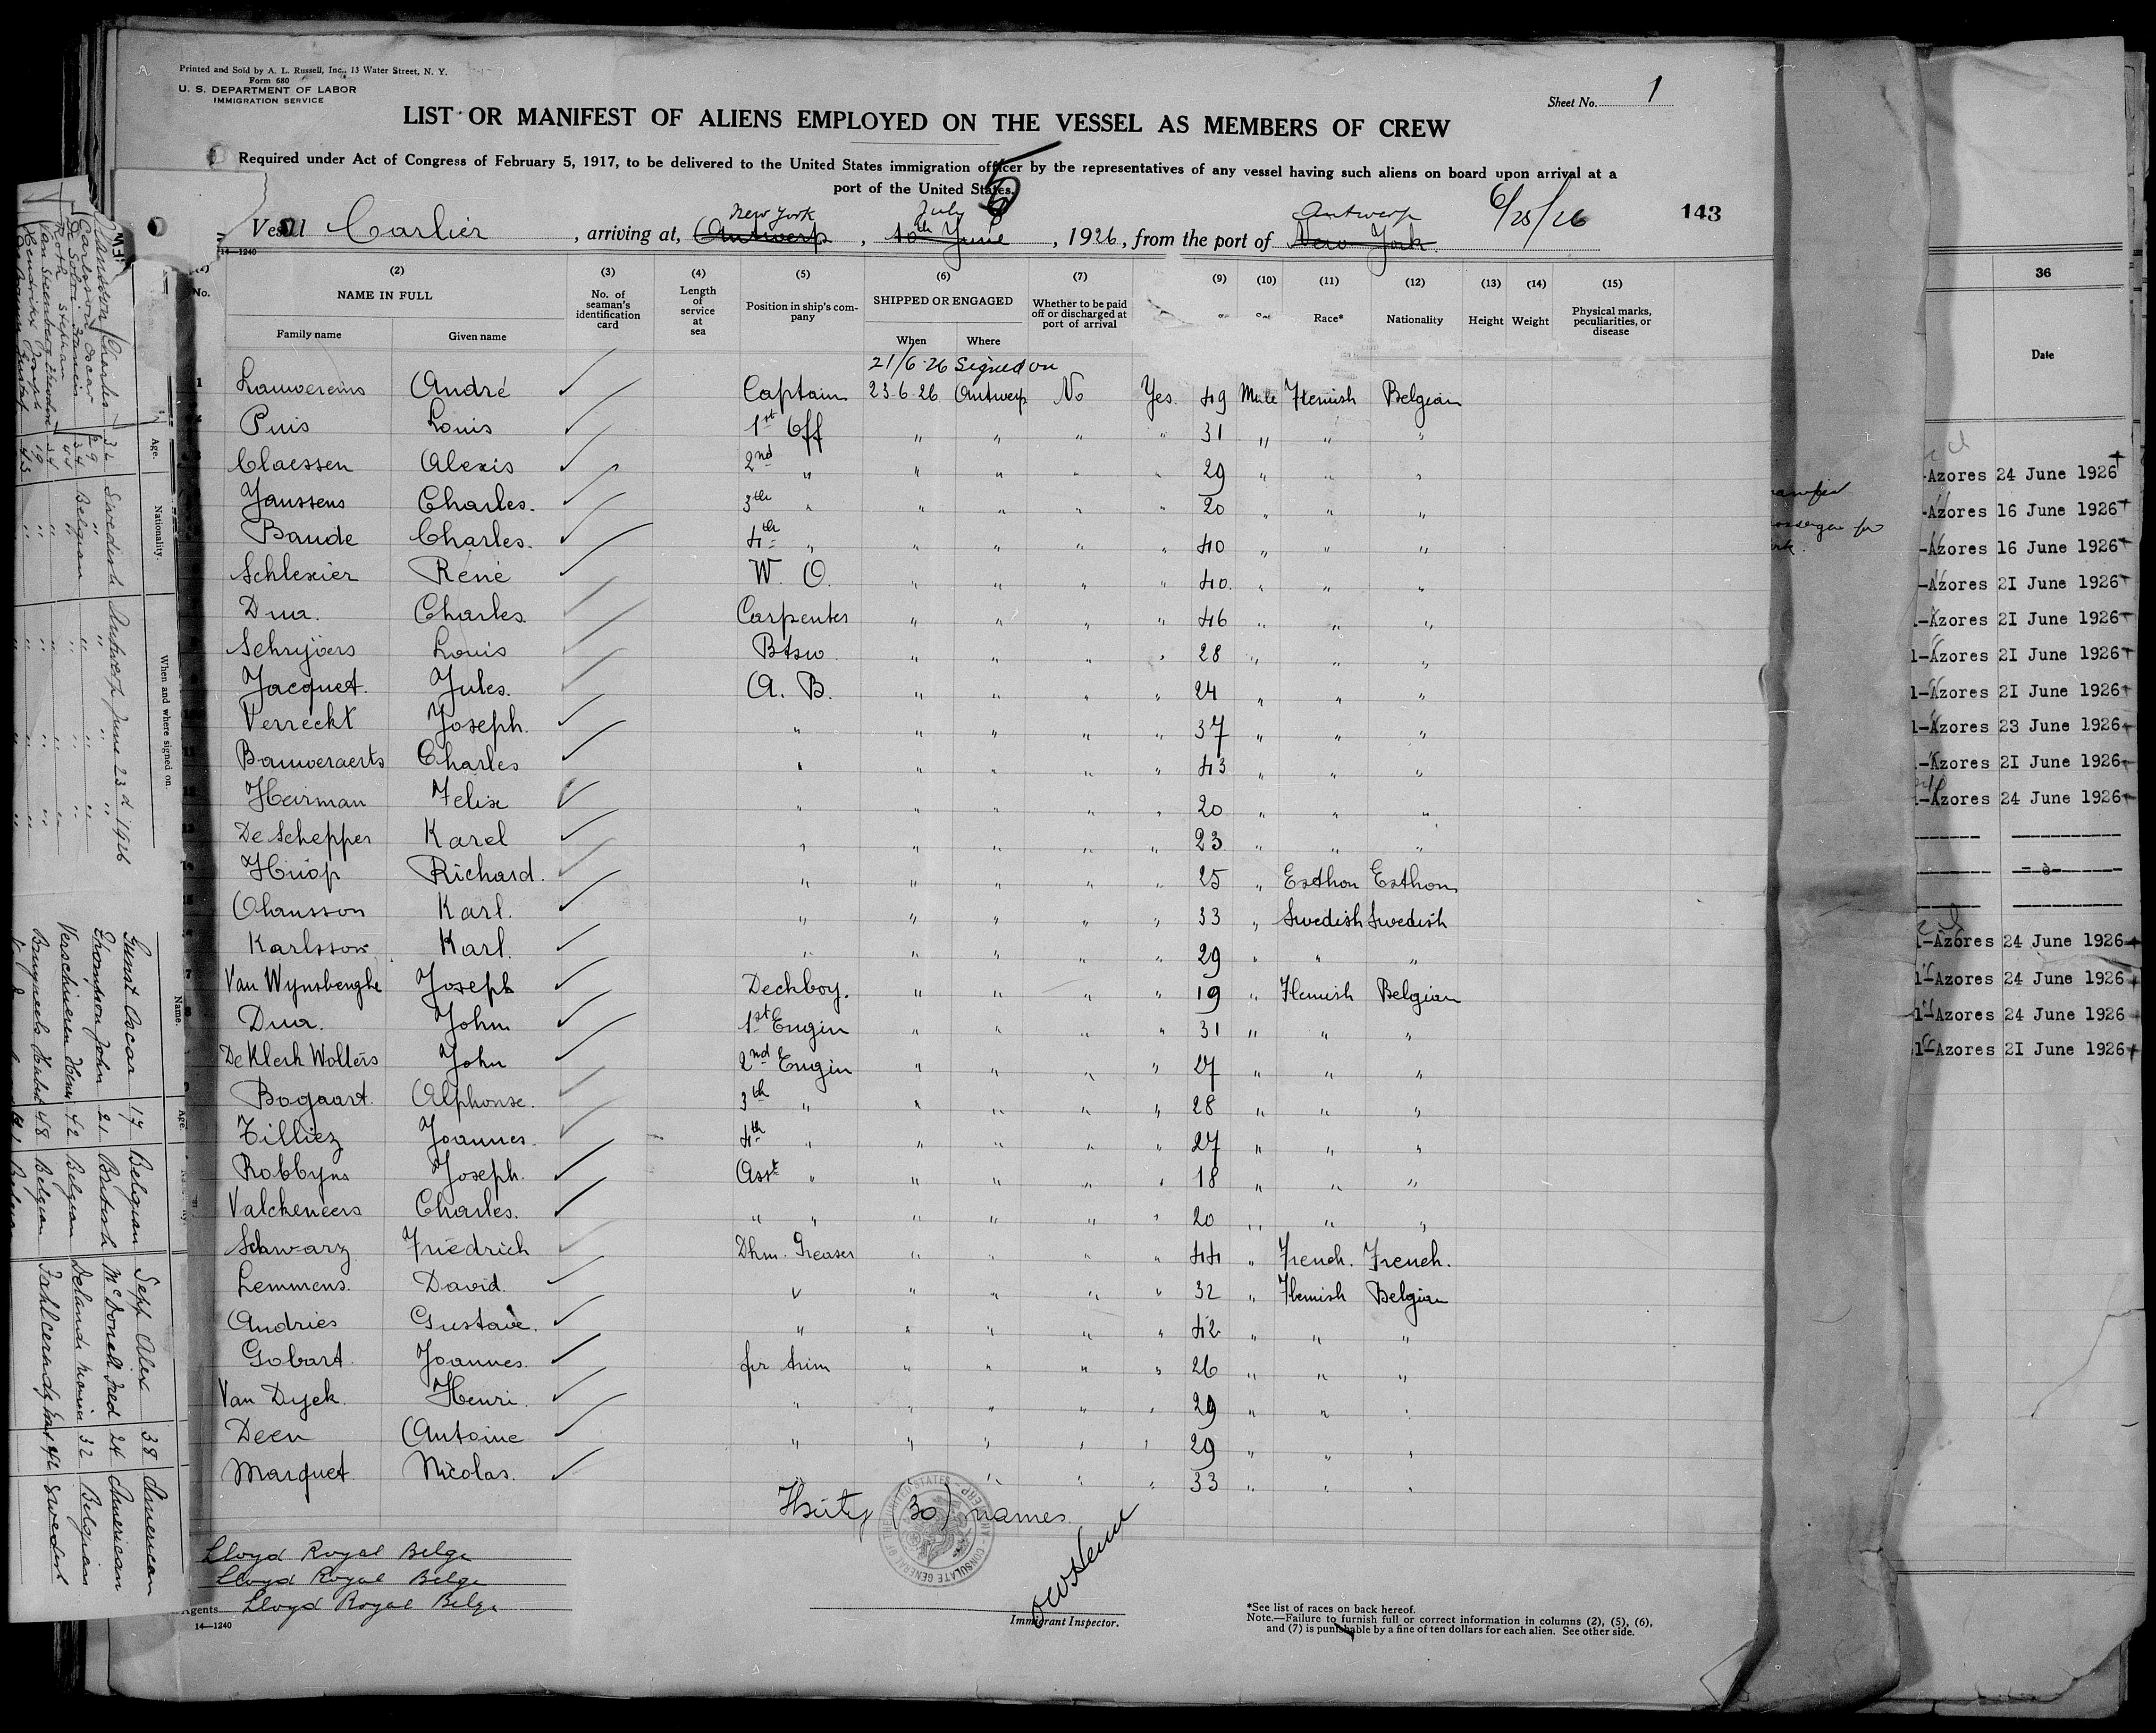 Printed and Sold by A. L. Russell, Inc., 13 Water Street, N. Y.
Form 680
U. S. DEPARTMENT OF LABOR
IMMIGRATION SERVICE
Sheet No. 1
LIST OR MANIFEST OF ALIENS EMPLOYED ON THE VESSEL AS MEMBERS OF CREW
Required under Act of Congress of February 5, 1917, to be delivered to the United States immigration officer by the representatives of any vessel having such aliens on board upon arrival at a
port of the United States.
New York July Antwerp 6/25/26 143
Carlier , arriving at, Antwerp , 10th June , 1926, from the port of New York
14—1240
(2) (3) (4) (5) (6) (7) (9) (10) (11) (12) (13) (14) (15)
No. NAME IN FULL No. of seaman's identification card Length of service at sea Position in ship's company SHIPPED OR ENGAGED Whether to be paid off or discharged at port of arrival Race* Nationality Height Weight Physical marks, peculiarities, or disease
Family name Given name When Where
21/6-26 Signed on
1 Lauwereins André Captain 23.6.26 Antwerp No Yes 49 Male Flemish Belgian
Puis Louis 1st Off " " " " 31 " " "
Claessen Alexis 2nd " " " " " 29 " " "
Janssens Charles. 3th " " " " " 20 " " "
Baude Charles. 4th " " " " " 40 " " "
Schlexier René W. O. " " " " 40 " " "
Dua. Charles. Carpenter " " " " 46 " " "
Schryvers Louis Btsw " " " " 28 " " "
Jacquet. Jules. A. B. " " " " 24 " " "
Verreckt Joseph. " " " " " 37 " " "
11 Bauweraerts Charles " " " " " 43 " " "
12 Heirman Felix " " " " " 20 " " "
13 De Schepper Karel " " " " " 23 " " "
14 Huop Richard. " " " " " 25 " Esthon Esthon
15 Ohansson Karl. " " " " " 33 " Swedish Swedish
Karlsson Karl. " " " " " 29 " " "
7 Van Wynsberghe Joseph Deckboy. " " " " 19 " Flemish Belgian
8 Dua. John 1st Engin " " " " 31 " " "
De Klerk Wolters John 2nd Engin " " " " 27 " " "
Bogaart. Alphonse. 3th " " " " " 28 " " "
Tilliez Joannes. 4th " " " " " 27 " " "
Robbyns Joseph. Asst " " " " " 18 " " "
Valckeneers Charles. " " " " " " 20 " " "
Schwarz Friedrich Dkm. Greaser " " " " 44 " French. French.
Lemmens. David. " " " " " 32 " Flemish Belgian
Andries Gustave. " " " " " 42 " " "
Gobart. Joannes. fir trim " " " " 26 " " "
Van Dyck. Henri. " " " " " 29 " " "
Deen Antoine " " " " " 29 " " "
Marquet. Nicolas. " " " " " 33 " " "
Thirty (30) names
Lloyd Royal Belge
Lloyd Royal Belge
Agents Lloyd Royal Belge
14—1240
Immigrant Inspector.
*See list of races on back hereof.
Note.—Failure to furnish full or correct information in columns (2), (5), (6),
and (7) is punishable by a fine of ten dollars for each alien. See other side.
Age. Nationality. When and where signed on.
Charles 32 Swedish Antwerp June 23d 1926
Carlsson Oscar 29 " "
Roth Stephan 44 "
Hendrikx Joseph 19 "
Name. Age.
Gunst Oscar 17 Belgian
Thomson John 21 British
Verschueren Henri 42 Belgian
48 Belgian
Sepp Alex 38 American
McDonell Fred 24 American
32 Belgian
42 Swedish
36
Date
-Azores 24 June 1926
-Azores 16 June 1926
-Azores 16 June 1926
-Azores 21 June 1926
-Azores 21 June 1926
l-Azores 21 June 1926
l-Azores 21 June 1926
l-Azores 23 June 1926
-Azores 21 June 1926
-Azores 24 June 1926
l-Azores 24 June 1926
l-Azores 24 June 1926
l-Azores 24 June 1926
l-Azores 21 June 1926